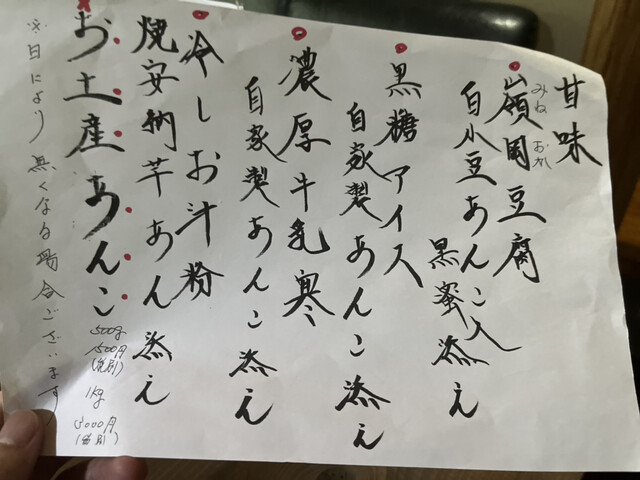 甘味
嶺岡豆腐
みね おか
白小豆あんこ入
黒蜜添え
黒糖アイス
自家製あんこ添え
濃厚牛乳寒
自家製あんこ添え
冷しお汁粉
焼安納芋あん添え
お土産あんこ
500g
1500円
(税別)
1kg
3000円
(税別)
※日により無くなる場合ございます